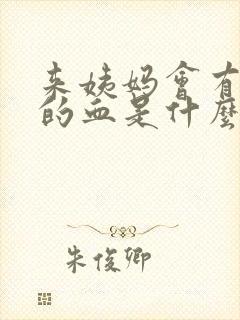 来姨妈會有
的血是什麼
朱俊卿